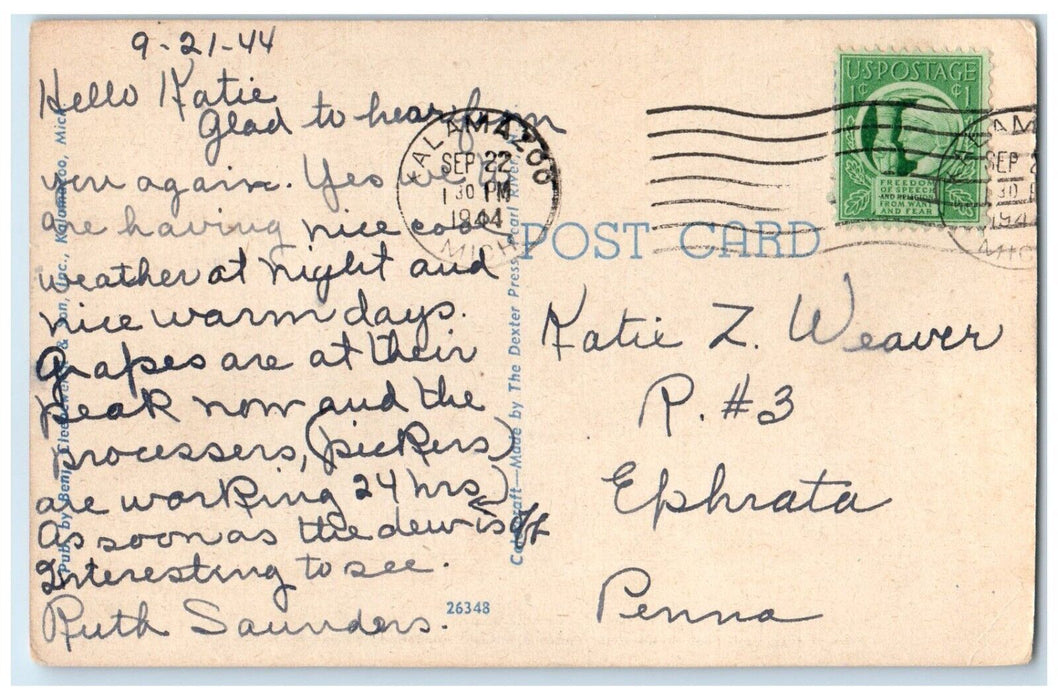 9-21-44
Hello Katie
Glad to hear from
you again. Yes we
are having nice cool
weather at night and
nice warm days.
Grapes are at their
peak now and the
processers, (pickers)
are working 24 hrs)
As soon as the dew is off
Interesting to see.
Ruth Saunders.
26348
Pub. by Benj. & Son, Inc., Kalamazoo, Mich
Made by The Dexter Press, Pearl River, N.
POST CARD
KALAMAZOO
SEP 22
1 30 PM
1944
MICH
U.S. POSTAGE
1¢ ¢1
FREEDOM
OF SPEECH
AND RELIGION
FROM WANT
AND FEAR
SEP 2
30 P
1944
MICH
Katie Z. Weaver
R. #3
Ephrata
Penna